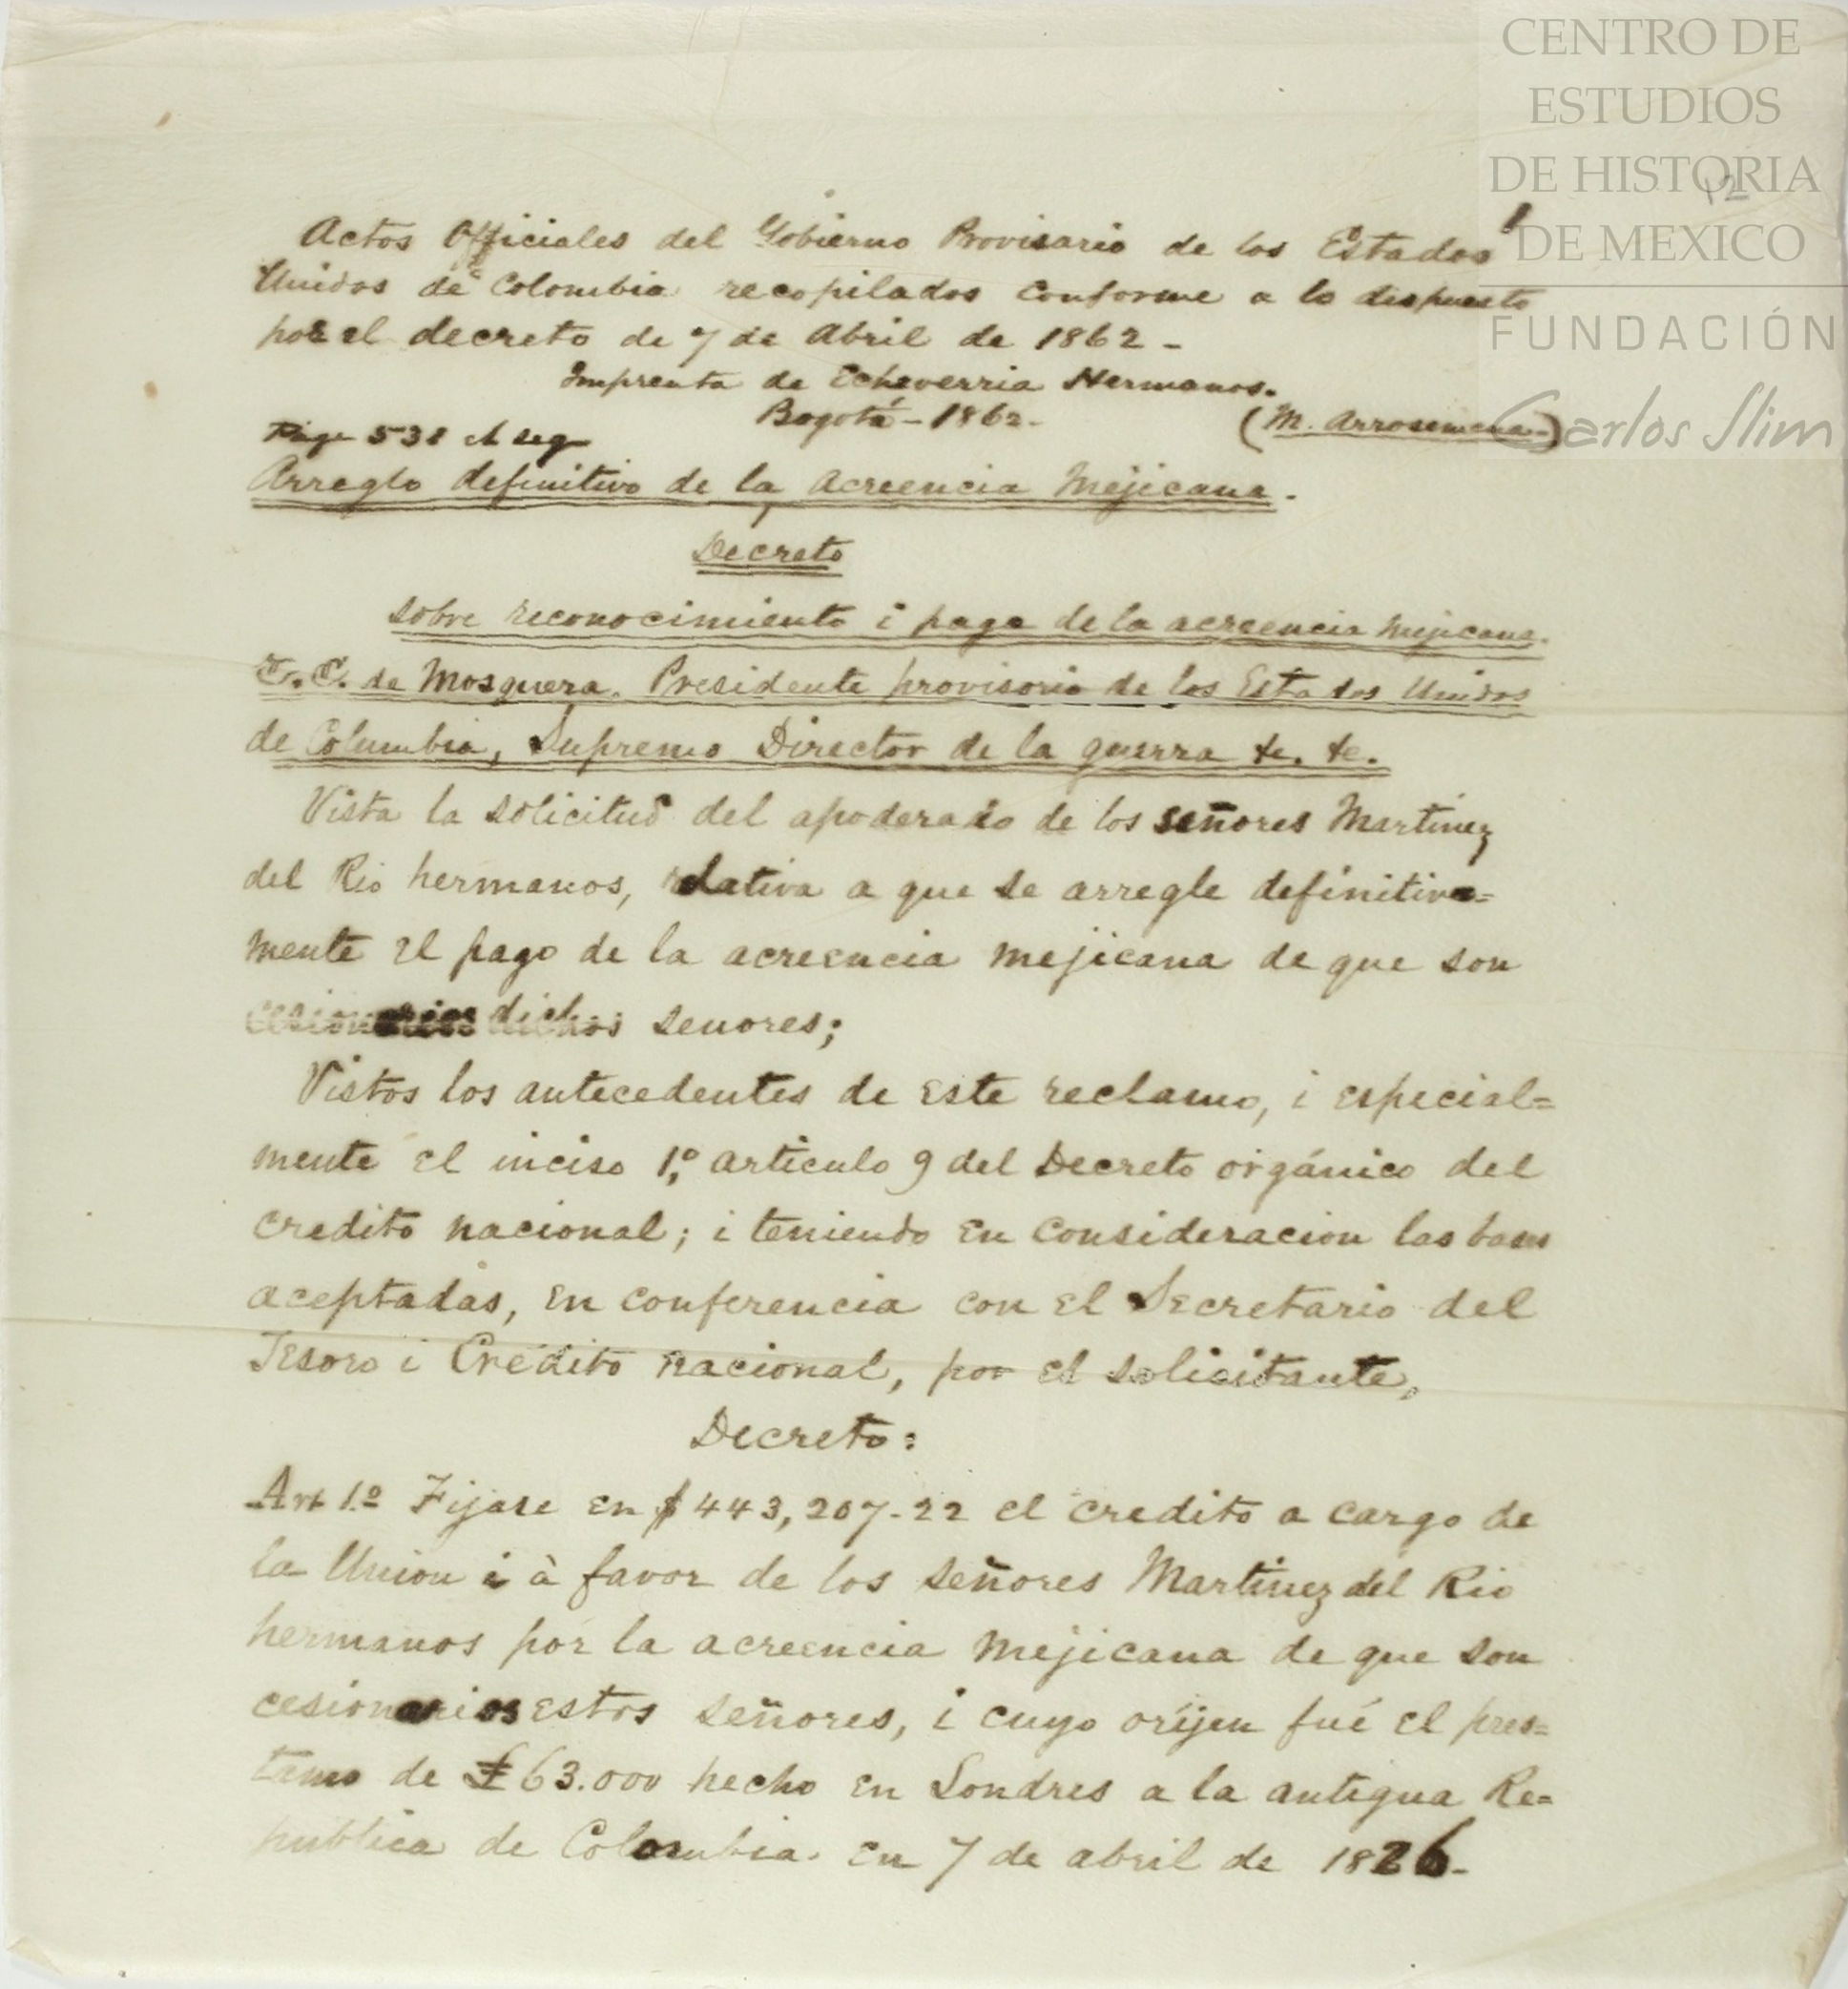 CENTRO DE
ESTUDIOS
DE HISTORIA
DE MEXICO
FUNDACIÓN
Carlos Slim
12
1
Actos Officiales del Gobierno Provisario de los Estados
Unidos de Colombia recopilados conforme a lo dispuesto
por el decreto de 7 de Abril de 1862 -
Imprenta de Echeverria Hermanos.
Bogotá - 1862 - (M. Arrosemena -)
Page 538 et seq
Arreglo definitivo de la acreencia Mejicana.
Decreto
sobre reconocimiento i pago de la acreencia mejicana.
T. C. de Mosquera. Presidente provisorio de los Estados Unidos
de Columbia, Supremo Director de la guerra &c. &c.
Vista la solicitud del apoderado de los señores Martinez
del Rio hermanos, relativa a que se arregle definitiva=
mente el pago de la acreencia mejicana de que son
cesionarios dichos senores;
Vistos los antecedentes de este reclamo, i especial=
mente el inciso 1º, articulo 9 del Decreto orgánico del
credito nacional; i teniendo en consideracion las bases
aceptadas, en conferencia con el Secretario del
Tesoro i Crédito nacional, por el solicitante,
Decreto:
Art 1.º Fijase en $443,207-22 el credito a cargo de
la Union i à favor de los señores Martinez del Rio
hermanos por la acreencia Mejicana de que son
cesionarios estos señores, i cuyo oríjen fué el pres=
tamo de £63.000 hecho en Londres a la antigua Re=
publica de Colombia. en 7 de abril de 1826-